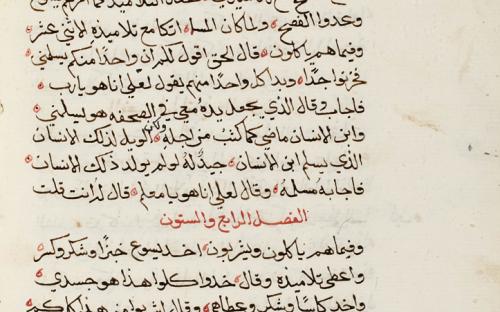 وعدوا الفصح ولما كان المسا اتكا مع تلاميذه الاثنى عشر
وفيما هم ياكلون قال الحق اقول لكم ان واحدًا منكم يسلمني
فحزنوا جدًا وبدا كل واحدًا منهم يقول لعلي انا هو يا رب
فاجاب وقال الذي يجعل يده معي في الصحفه هو يسلمني
وابن الانسان ماضي كما كتب من اجله ولكن الويل لذلك الانسان
الذي يسلم ابن الانسان جيدً له لو لم يولد ذلك الانسان
فاجابه مسلمه وقال لعلي انا هو يا معلم قال له انت قلت
الفصل الرابع والستون
وفيما هم ياكلون ويشربون اخد يسوع خبزًا وشكر وكسر
واعطى تلاميذه وقال خدوا كلوا هذا هو جسدي
واخد كاسًا وشكر وعطاهم وقال اشربوا من هذا كلكم